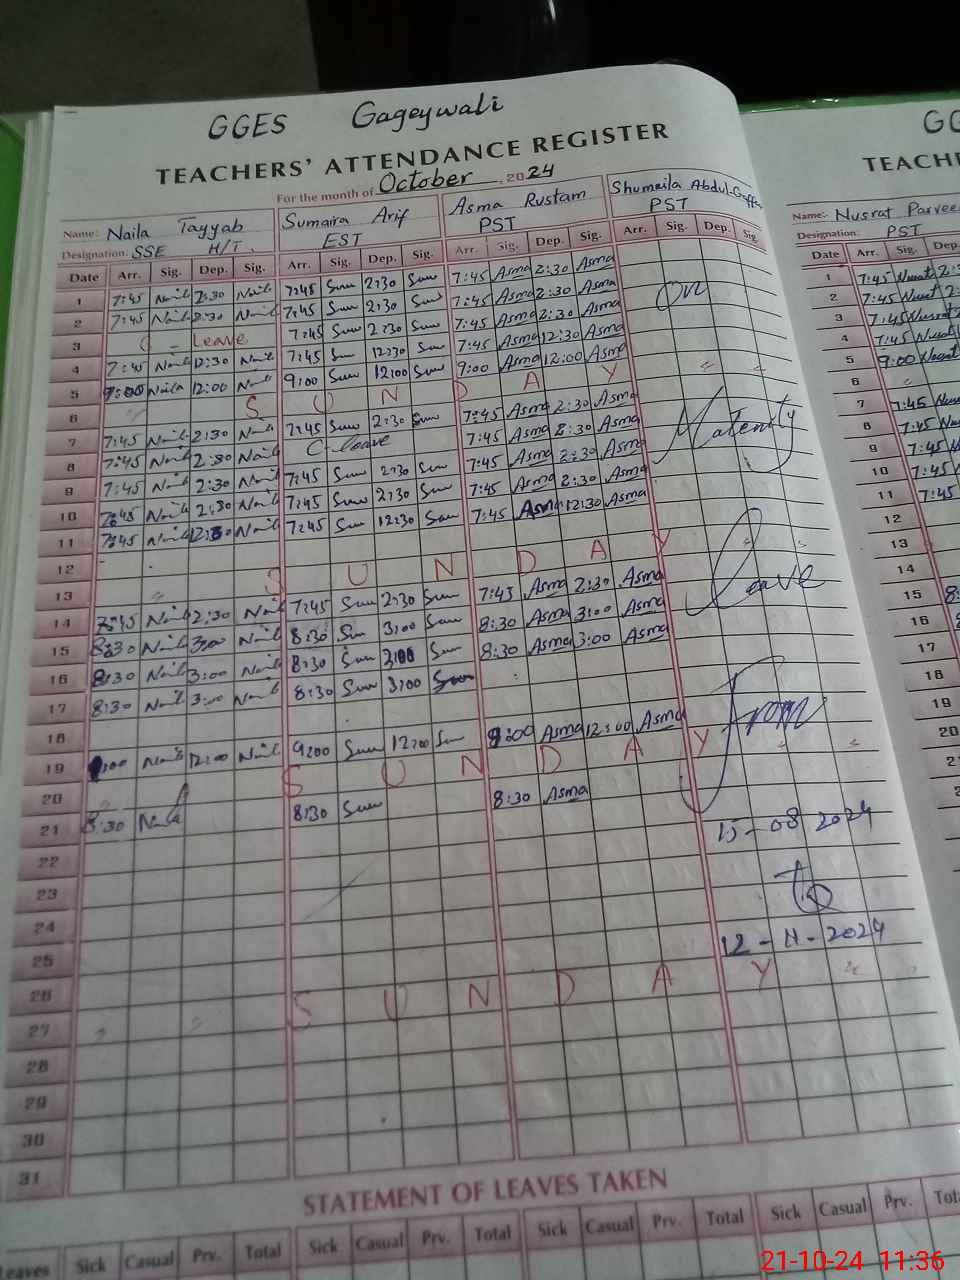 GGES Gageywali
TEACHERS' ATTENDANCE REGISTER
For the month of October, 2024
Name: Naila Tayyab Sumaira Arif Asma Rustam Shumaila Abdul
Designation: SSE H/T. EST PST PST
Date Arr. Sig. Dep. Sig. Arr. Sig. Dep. Sig. Arr. Sig. Dep. Sig. Arr. Sig. Dep. Sig.
1 7:45 Naila 2:30 Naila 7:45 Sum 2:30 Sum 7:45 Asma 2:30 Asma
2 7:45 Naila 2:30 Naila 7:45 Sum 2:30 Sum 7:45 Asma 2:30 Asma
3 C - Leave 7:45 Sum 2:30 Sum 7:45 Asma 2:30 Asma On
4 7:45 Naila 12:30 Naila 7:45 Sum 12:30 Sum 7:45 Asma 12:30 Asma
5 9:00 Naila 12:00 Naila 9:00 Sum 12:00 Sum 9:00 Asma 12:00 Asma
6 S U N D A Y
7 7:45 Naila 2:30 Naila 7:45 Sum 2:30 Sum 7:45 Asma 2:30 Asma Maternity
8 7:45 Naila 2:30 Naila C-leave 7:45 Asma 2:30 Asma
9 7:45 Naila 2:30 Naila 7:45 Sum 2:30 Sum 7:45 Asma 2:30 Asma
10 7:45 Naila 2:30 Naila 7:45 Sum 2:30 Sum 7:45 Asma 2:30 Asma
11 7:45 Naila 12:30 Naila 7:45 Sum 12:30 Sum 7:45 Asma 12:30 Asma
12
13 S U N D A Y
14 7:45 Naila 2:30 Naila 7:45 Sum 2:30 Sum 7:45 Asma 2:30 Asma leave
15 8:30 Naila 3:00 Naila 8:30 Sum 3:00 Sum 8:30 Asma 3:00 Asma
16 8:30 Naila 3:00 Naila 8:30 Sum 3:00 Sum 8:30 Asma 3:00 Asma
17 8:30 Naila 3:00 Naila 8:30 Sum 3:00 Sum
18 From
19 9:00 Naila 12:00 Naila 9:00 Sum 12:00 Sum 9:00 Asma 12:00 Asma
20 S U N D A Y
21 8:30 Naila 8:30 Sum 8:30 Asma
22 15-08 2024
23
24 to
25 12-11-2024
26
27 S U N D A Y
28
29
30
31
STATEMENT OF LEAVES TAKEN
Leaves Sick Casual Prv. Total Sick Casual Prv. Total Sick Casual Prv. Total Sick Casual Prv.
GG
TEACH
Name:- Nusrat Parveen
Designation: PST
Date Arr. Sig. Dep.
1 7:45 Nusrat
2 7:45 Nusrat
3 7:45 Nusrat
4 7:45 Nusrat
5 9:00 Nusrat
6
7 7:45
8 7:45
9 7:45
10 7:45
11 7:45
12
13
14
15
16
17
18
19
20
21-10-24 11:36